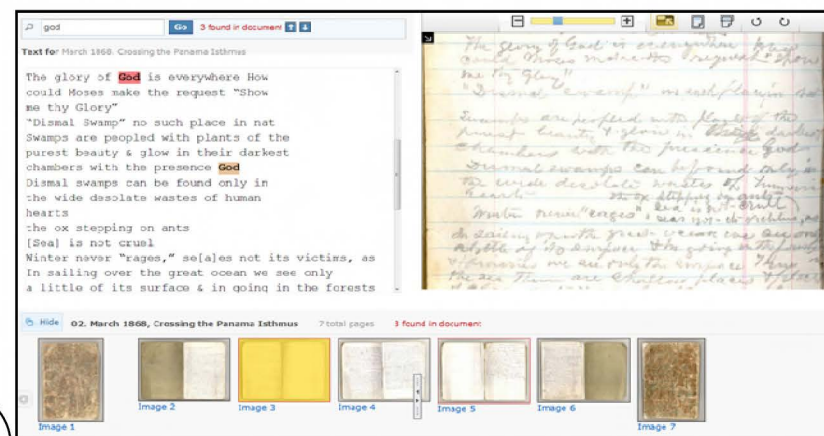 god
Go
3 found in document
Text for March 1868. Crossing the Panama Isthmus
The glory of God is everywhere How
could Moses make the request "Show
me thy Glory"
"Dismal Swamp" no such place in nat
Swamps are peopled with plants of the
purest beauty & glow in their darkest
chambers with the presence God
Dismal swamps can be found only in
the wide desolate wastes of human
hearts
the ox stepping on ants
[Sea] is not cruel
Winter never "rages," se[a]es not its victims, as
In sailing over the great ocean we see only
a little of its surface & in going in the forests
The glory of God is everywhere How
could Moses make the request "Show
me thy Glory"
"Dismal swamp" no such place in nat
Swamps are peopled with plants of the
purest beauty & glow in darkest
chambers with the presence Gods
Dismal swamps can be found only in
the wide desolate wastes of human
hearts the ox stepping on ants
Winter never "rages"
In sailing over the great ocean we see only
a little of its surface & in going in the forests
Hide
02. March 1868, Crossing the Panama Isthmus
7 total pages
3 found in document
Image 1
Image 2
Image 3
Image 4
Image 5
Image 6
Image 7